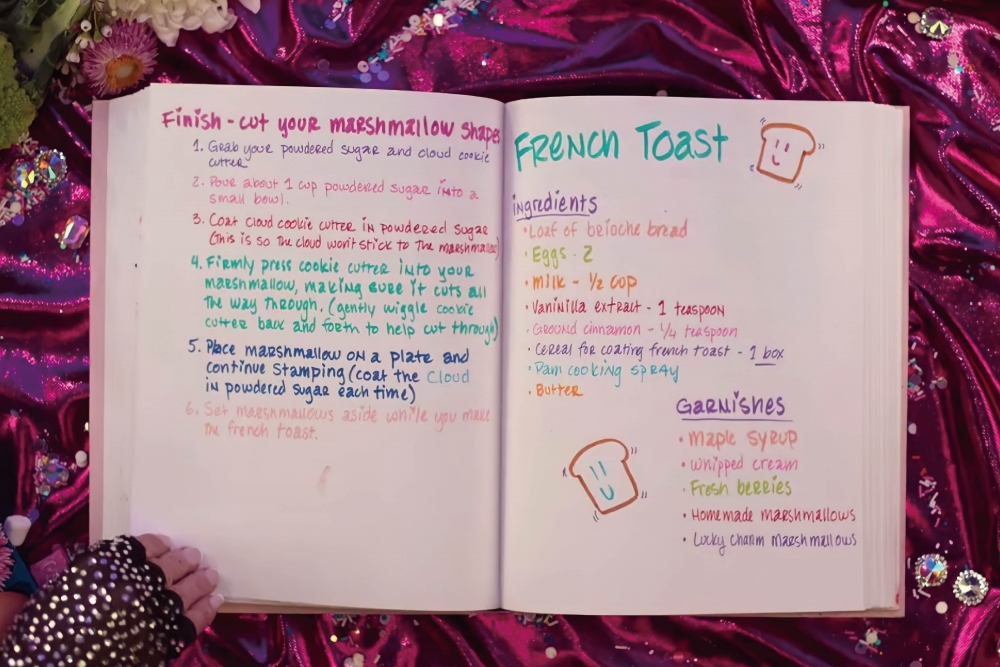 Finish - cut your marshmallow shapes
1. Grab your powdered sugar and cloud cookie
cutter
2. Pour about 1 cup powdered sugar into a
small bowl.
3. Coat cloud cookie cutter in powdered sugar
(this is so the cloud won't stick to the marshmallow)
4. Firmly press cookie cutter into your
marshmallow, making sure it cuts all
the way through. (gently wiggle cookie
cutter back and forth to help cut through)
5. Place marshmallow on a plate and
continue stamping (coat the cloud
in powdered sugar each time)
6. Set marshmallows aside while you make
the french toast.
French Toast
ingredients
• Loaf of brioche bread
• Eggs - 2
• milk - 1/2 cup
• Vaninilla extract - 1 teaspoon
• Ground cinnamon - 1/4 teaspoon
• Cereal for coating french toast - 1 box
• Pam cooking spray
• Butter
Garnishes
• maple syrup
• whipped cream
• Fresh berries
• Homemade marshmallows
• Lucky Charm marshmallows